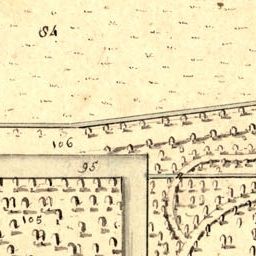 84
106
95
105